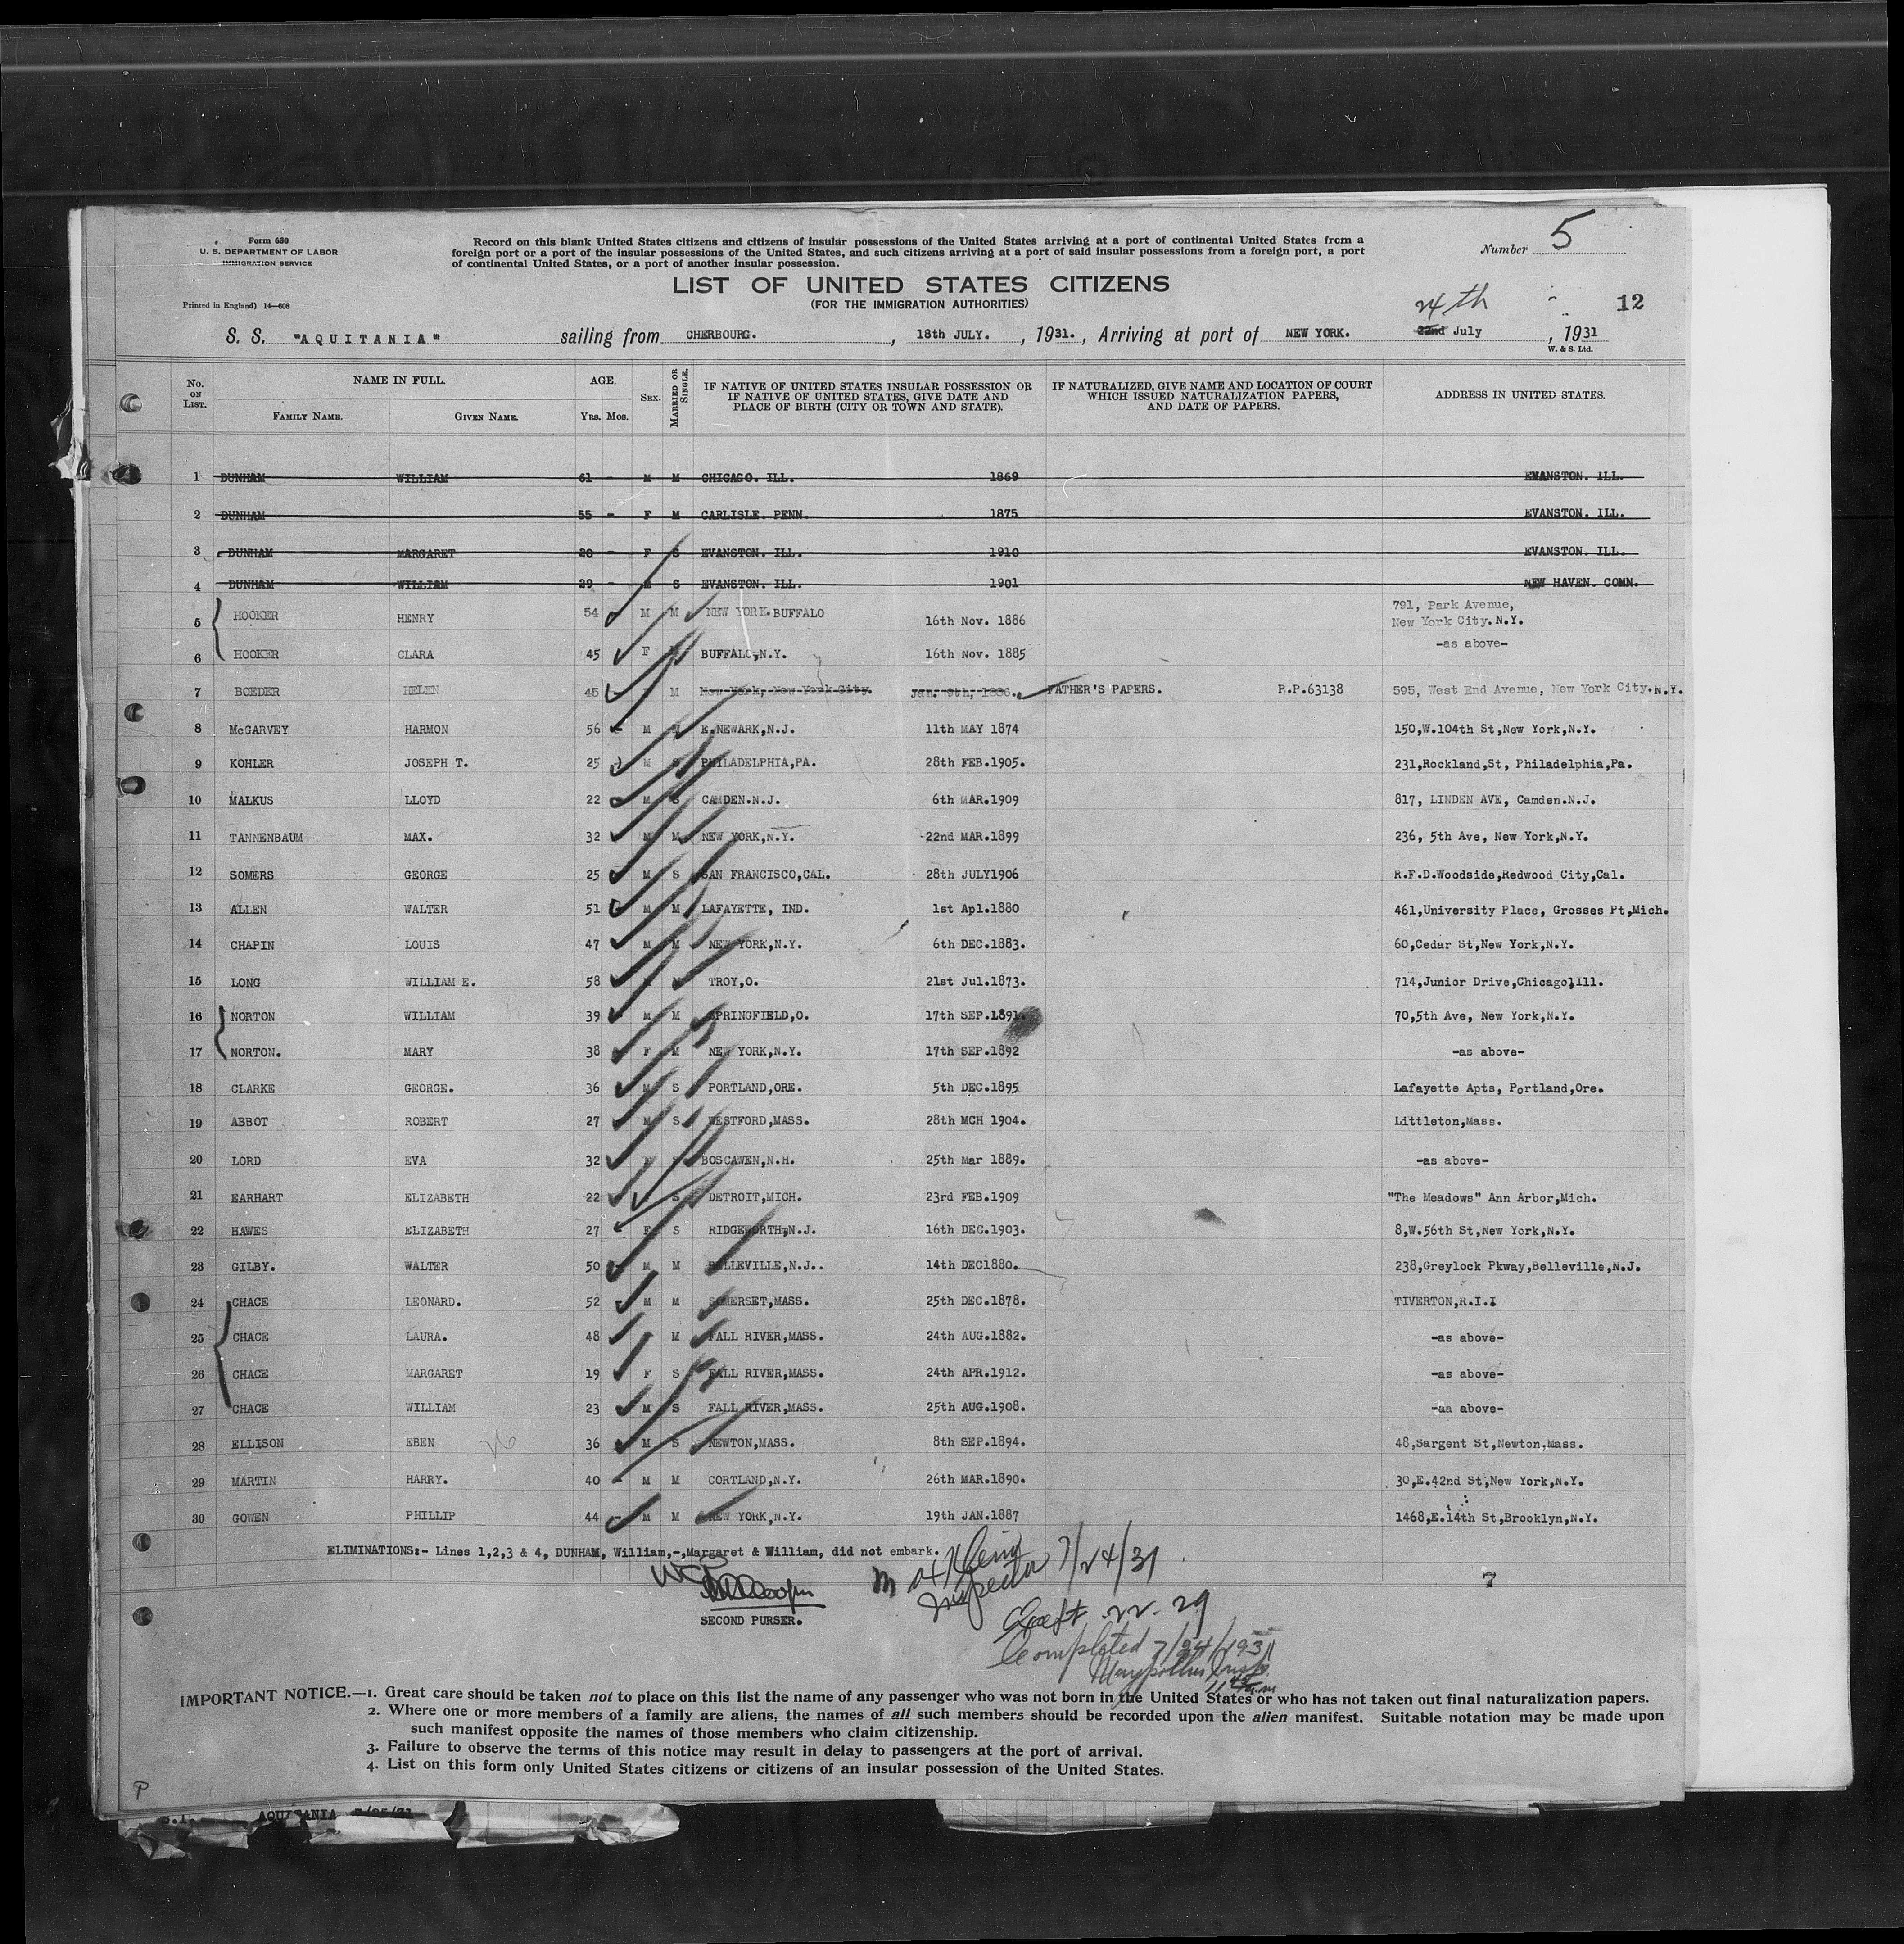 Form 630
U. S. DEPARTMENT OF LABOR
IMMIGRATION SERVICE
Printed in England) 14—608
Record on this blank United States citizens and citizens of insular possessions of the United States arriving at a port of continental United States from a
foreign port or a port of the insular possessions of the United States, and such citizens arriving at a port of said insular possessions from a foreign port, a port
of continental United States, or a port of another insular possession.
Number 5
LIST OF UNITED STATES CITIZENS
(FOR THE IMMIGRATION AUTHORITIES)
24th
12
S. S. "AQUITANIA" sailing from CHERBOURG. , 18th JULY. , 1931. , Arriving at port of NEW YORK. 22nd July , 1931
W. & S. Ltd.
No. ON LIST. NAME IN FULL. FAMILY NAME. GIVEN NAME. AGE. Yrs. Mos. SEX. MARRIED OR SINGLE. IF NATIVE OF UNITED STATES INSULAR POSSESSION OR IF NATIVE OF UNITED STATES, GIVE DATE AND PLACE OF BIRTH (CITY OR TOWN AND STATE). IF NATURALIZED, GIVE NAME AND LOCATION OF COURT WHICH ISSUED NATURALIZATION PAPERS, AND DATE OF PAPERS. ADDRESS IN UNITED STATES.
1 DUNHAM WILLIAM 61 - M M CHICAGO. ILL. 1869 EVANSTON. ILL.
2 DUNHAM 55 - F M CARLISLE PENN. 1875 EVANSTON. ILL.
3 DUNHAM MARGARET 20 - F S EVANSTON. ILL. 1910 EVANSTON. ILL.
4 DUNHAM WILLIAM 29 - M S EVANSTON. ILL. 1901 NEW HAVEN. CONN.
5 HOOKER HENRY 54 M M NEW YORK.BUFFALO 16th Nov. 1886 791, Park Avenue, New York City.N.Y.
6 HOOKER CLARA 45 F BUFFALO,N.Y. 16th Nov. 1885 -as above-
7 BOEDER HELEN 45 M New York, New York City. Jan. 9th, 1886. FATHER'S PAPERS. R.P.63138 595, West End Avenue, New York City.N.Y.
8 McGARVEY HARMON 56 M M E.NEWARK,N.J. 11th MAY 1874 150,W.104th St,New York,N.Y.
9 KOHLER JOSEPH T. 25 M S PHILADELPHIA,PA. 28th FEB.1905. 231,Rockland,St, Philadelphia,Pa.
10 MALKUS LLOYD 22 M S CAMDEN.N.J. 6th MAR.1909 817, LINDEN AVE, Camden.N.J.
11 TANNENBAUM MAX. 32 M M NEW YORK,N.Y. 22nd MAR.1899 236, 5th Ave, New York,N.Y.
12 SOMERS GEORGE 25 M S SAN FRANCISCO,CAL. 28th JULY1906 R.F.D.Woodside,Redwood City,Cal.
13 ALLEN WALTER 51 M M LAFAYETTE, IND. 1st Apl.1880 461,University Place, Grosses Pt,Mich.
14 CHAPIN LOUIS 47 M M NEW YORK,N.Y. 6th DEC.1883. 60,Cedar St,New York,N.Y.
15 LONG WILLIAM E. 58 TROY,O. 21st Jul.1873. 714,Junior Drive,Chicago,Ill.
16 NORTON WILLIAM 39 M M SPRINGFIELD,O. 17th SEP.1891. 70,5th Ave, New York,N.Y.
17 NORTON. MARY 38 F M NEW YORK,N.Y. 17th SEP.1892 -as above-
18 CLARKE GEORGE. 36 M S PORTLAND,ORE. 5th DEC.1895 Lafayette Apts, Portland,Ore.
19 ABBOT ROBERT 27 M S WESTFORD,MASS. 28th MCH 1904. Littleton,Mass.
20 LORD EVA 32 F S BOSCAWEN,N.H. 25th Mar 1889. -as above-
21 EARHART ELIZABETH 22 S DETROIT,MICH. 23rd FEB.1909 "The Meadows" Ann Arbor,Mich.
22 HAWES ELIZABETH 27 F S RIDGEWORTH,N.J. 16th DEC.1903. 8,W.56th St,New York,N.Y.
23 GILBY. WALTER 50 M M BELLEVILLE,N.J.. 14th DEC1880. 238,Greylock Pkway,Belleville,N.J.
24 CHACE LEONARD. 52 M M SOMERSET,MASS. 25th DEC.1878. TIVERTON,R.I.I
25 CHACE LAURA. 48 M FALL RIVER,MASS. 24th AUG.1882. -as above-
26 CHACE MARGARET 19 F S FALL RIVER,MASS. 24th APR.1912. -as above-
27 CHACE WILLIAM 23 M S FALL RIVER,MASS. 25th AUG.1908. -aa above-
28 ELLISON EBEN 36 M S NEWTON,MASS. 8th SEP.1894. 48,Sargent St,Newton,Mass.
29 MARTIN HARRY. 40 - M M CORTLAND,N.Y. 26th MAR.1890. 30,E.42nd St,New York,N.Y.
30 GOWEN PHILLIP 44 M M NEW YORK,N.Y. 19th JAN.1887 1468,E.14th St,Brooklyn,N.Y.
ELIMINATIONS:- Lines 1,2,3 & 4, DUNHAM, William,-,Margaret & William, did not embark.
Inspector 7/24/31
7
SECOND PURSER.
22. 29
Completed 7/24/1931
IMPORTANT NOTICE.—1. Great care should be taken not to place on this list the name of any passenger who was not born in the United States or who has not taken out final naturalization papers.
2. Where one or more members of a family are aliens, the names of all such members should be recorded upon the alien manifest. Suitable notation may be made upon
such manifest opposite the names of those members who claim citizenship.
3. Failure to observe the terms of this notice may result in delay to passengers at the port of arrival.
4. List on this form only United States citizens or citizens of an insular possession of the United States.
P
AQUITANIA